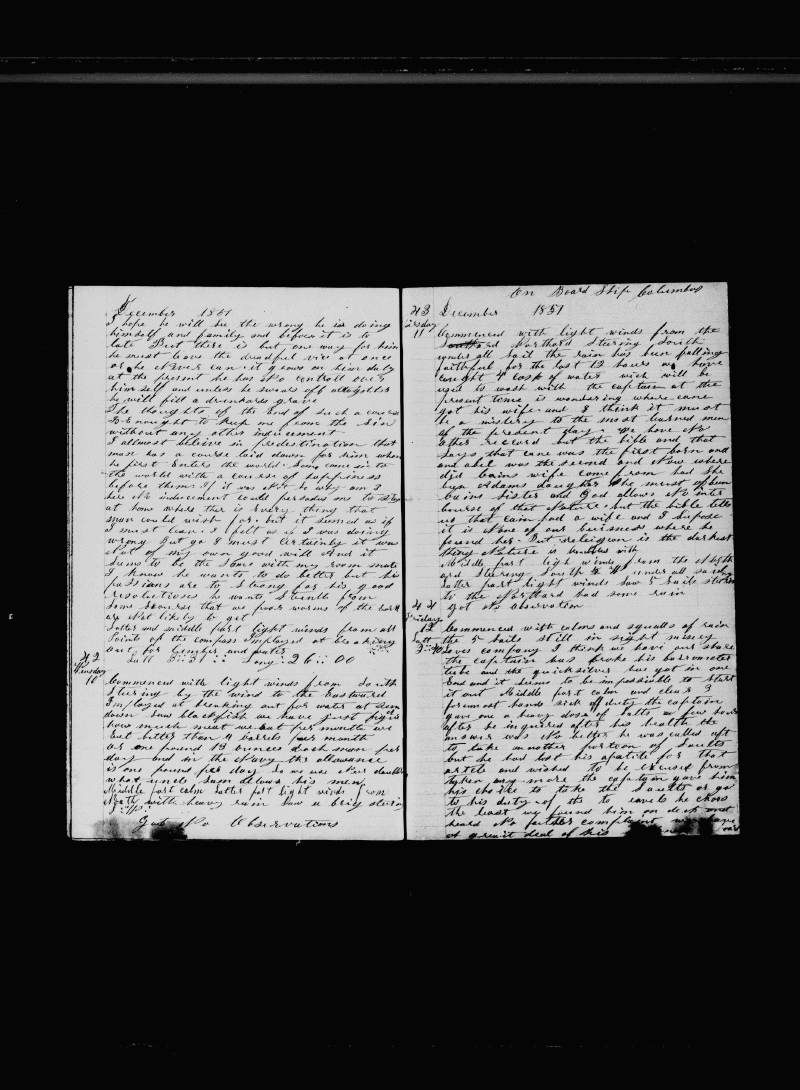 December 1851
I hope he will see the wrong he is doing
himself and family and before it is to
late But there is but one way for him
he must leave the dreadful vice at once
or he Never can it grows on him daly
at the present he has No controll over
him self and unless he swears off altogather
he will fill a drunkards grave
The thoughts of the End of such a course
Is Enought to keep me from the Sin
without any other inducement
I allmost beleive in predestination that
man has a course laid down for him when
he first Enters the world. Some come in to
the world with a course of happiness
before them If it was Not so why am I
here No inducement could persuade me to stop
at home where there is Every thing that
man could wish for but it semed as if
I must leave I felt as if I was doing
wrong but go I must Certainly it was
Not of my own good will And it
Seems to be the Same with my room mate
I know he wants to do better but his
passians are to Strong for his good
resolutiones he wants Strenth from
Some Sourse that we poor worms of the Earth
are Not likely to get
Latter and middle part light winds from all
Points of the compass Imployed at breaking
out for lumber and water
Latt 5::31 :: Long: 26::00
42
Wensday
10
Commenced with light winds from South
Stering by the wind to the Eastward
Imployed at breaking out for water at 4 pm
down Saw blackfish we have just figerd
how much meat we Eat per month we
Eat better than 4 barrels per month
or one pound 13 ounces Each man per
day and in the Navy the allowance
is one pound per day So we use Near double
what uncle Sam allows his men
Middle part calm Latter part light winds from
North with heavy rain Saw a brig stering
Got No Observations
On Board Ship Columbus
43 December 1851
11
Commenced with light winds from the
Northard Stering South
under all sail the rain has been falling
faithful for the last 12 hours we have
caught 4 cask of water wich will be
used to wash with the captain at the
present time is wondering where cane
got his wife and I think it must
be a mistery to the most learned men
of the present day. We have No
other reccord but the bible and that
says that cane was the first born and
and abel was the second and Now where
did Cains wife come from had She
been Adams daughter She must of been
Cains Sister and God allows No inter
course of that Nature but the bible tells
us that cain had a wife and I Supose
it is None of our buisness where he
found her. But religion is the darkest
thing Nature is with
Middle part ligh winds from the North
ard Stering South under all sail
Latter part light winds Saw 5 Sails stering
to the Northard had some rain
got No observation
44
Friday
12
Latt
Commenced with calms and squalls of rain
the 5 sails still in sight misery
loves company I think we have our share
the captain has broke his barrometer
tube and the quicksilver has got in one
End and it seems to be impossible to Start
it out Middle part calm and clear 3
foremost hands sick off duty the captain
gave one a heavy dose of salts a few hours
after he inquired after his health the
answer was No better he was called aft
to take another portion of Saults
but he had lost his apatite for that
artele and wished to be Excused from
taken any more the captain gave him
his choise to take the Saults or go
to his duty of the to he chose
the least we found him on deck and
heard No farther complaint we have
A great deal of his